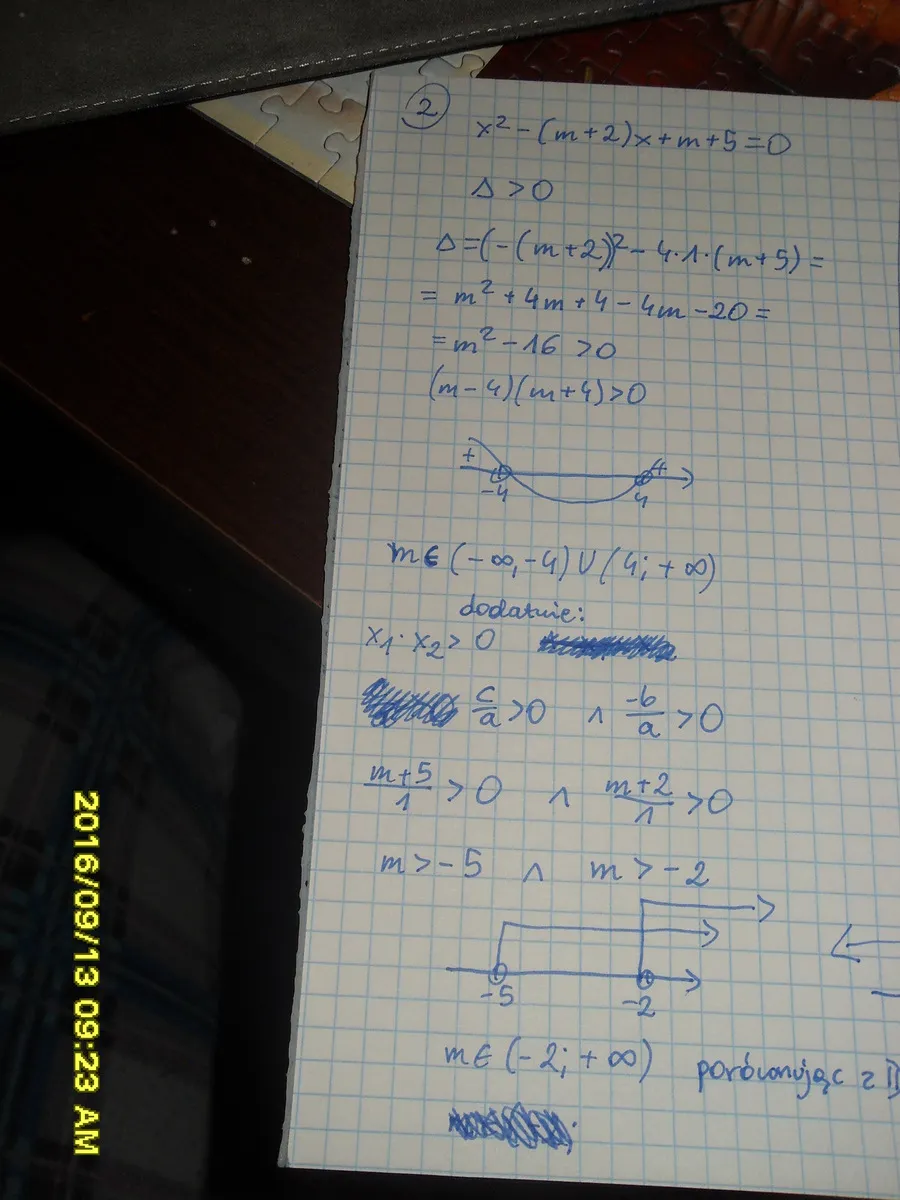 2
x² - (m+2)x + m + 5 = 0
Δ > 0
Δ = (-(m+2))² - 4·1·(m+5) =
= m² + 4m + 4 - 4m - 20 =
= m² - 16 > 0
(m-4)(m+4) > 0
+ +
-4 4
m ∈ (-∞, -4) ∪ (4; +∞)
dodatnie:
x₁ · x₂ > 0
c/a > 0 ∧ -b/a > 0
m+5/1 > 0 ∧ m+2/1 > 0
m > -5 ∧ m > -2
-5 -2
m ∈ (-2; +∞) porównując z
2016/09/13 09:23 AM